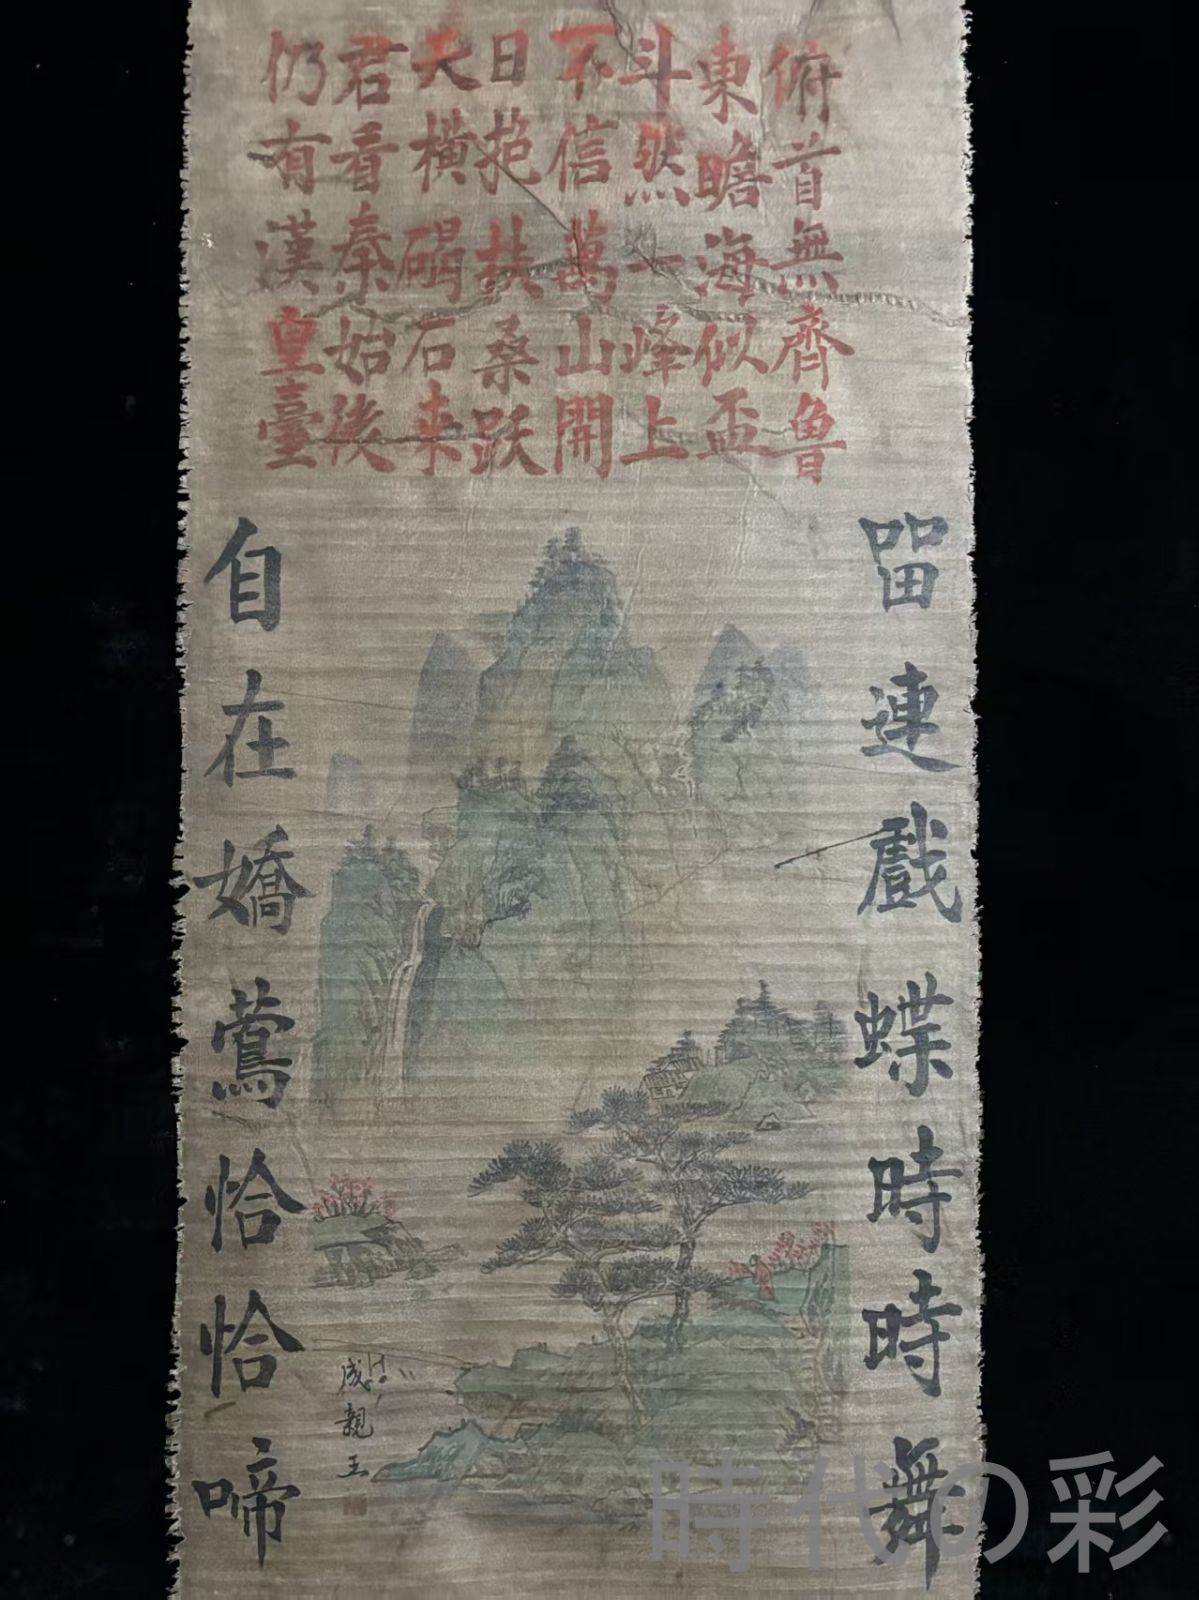 俯首無齊魯
東瞻海似盃
斗然一峰上
不信萬山開
日抱扶桑跃
天橫碣石来
君看秦始後
仍有漢皇臺
留連戲蝶時時舞
自在嬌鶯恰恰啼
成親王
時代の彩